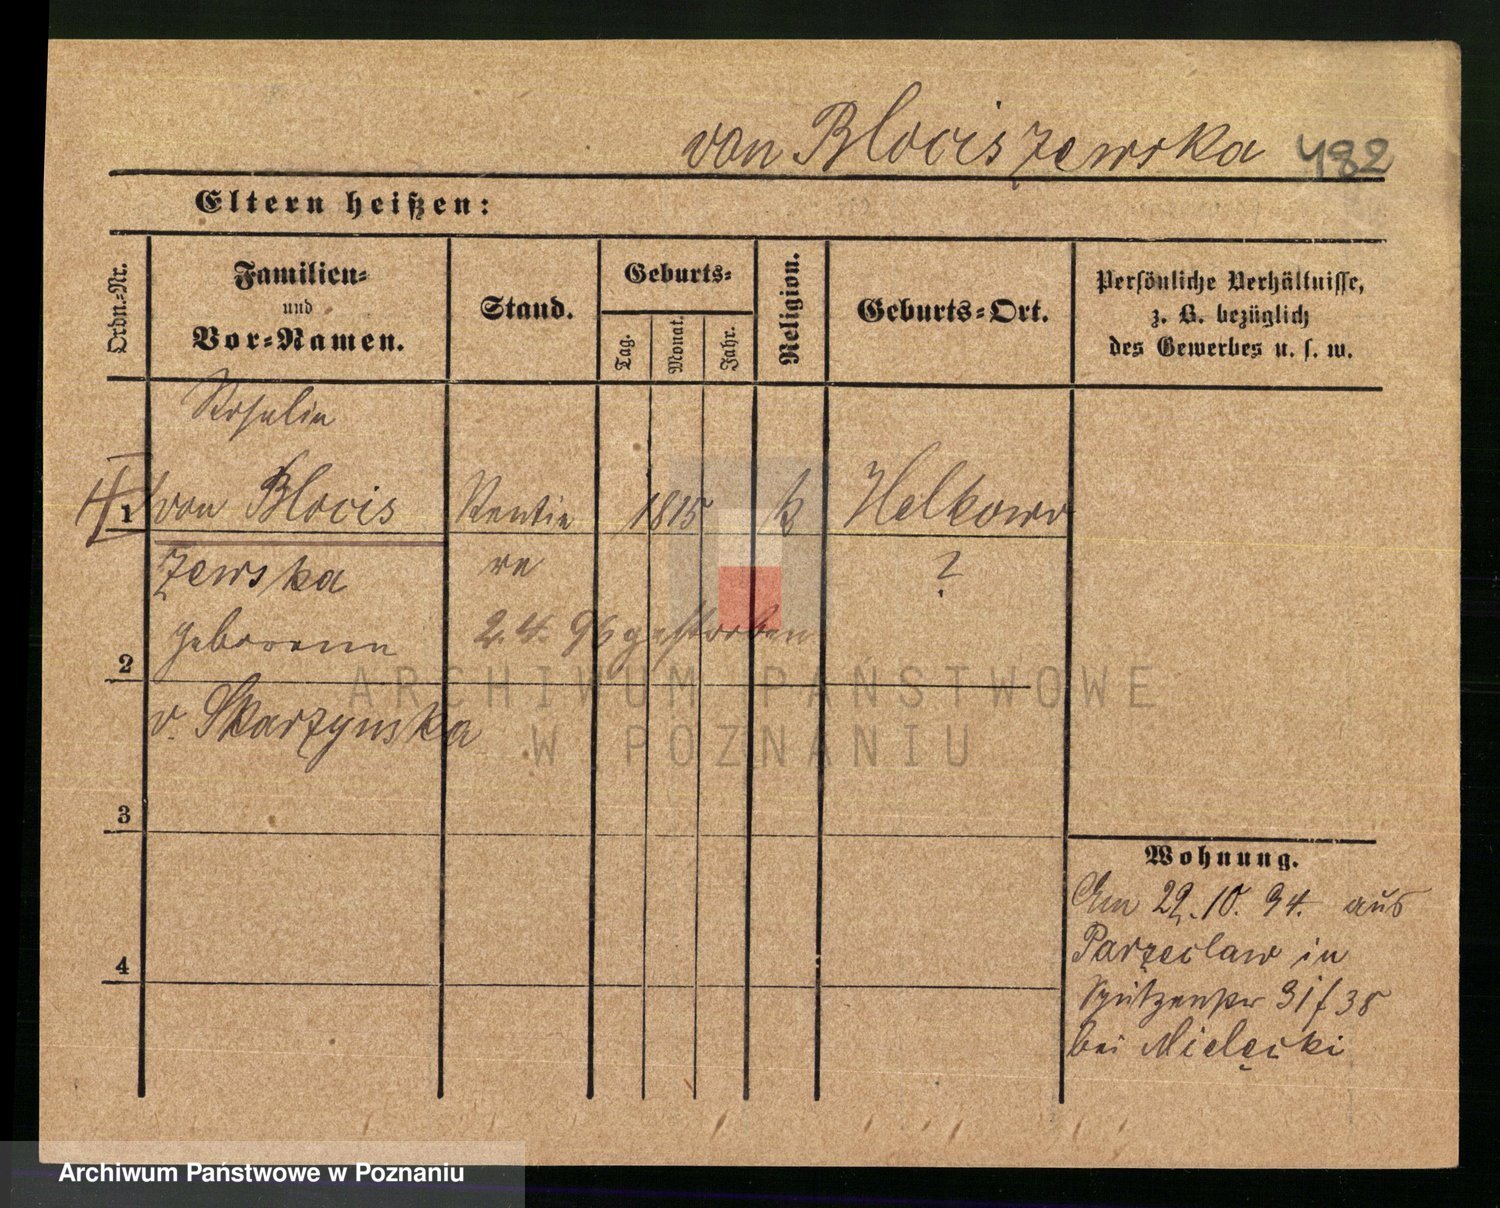 von Blociszewska 482
Eltern heißen:
Ordn.-Nr.
Familien-
und
Vor-Namen.
Stand.
Geburts-
Tag.
Monat.
Jahr.
Religion.
Geburts-Ort.
Persönliche Verhältnisse,
z. B. bezüglich
des Gewerbes u. s. w.
Rosalie
1 von Blocis Rentie 1815 k Helkowo
zewska re ?
geborene 2.4.96 gestorben
2
v. Skarzynska
3
4
Wohnung.
Am 22.10.94. aus
Parzeclaw in
Schützenstr 31
bei Mielęcki
ARCHIWUM PAŃSTWOWE
W POZNANIU
Archiwum Państwowe w Poznaniu